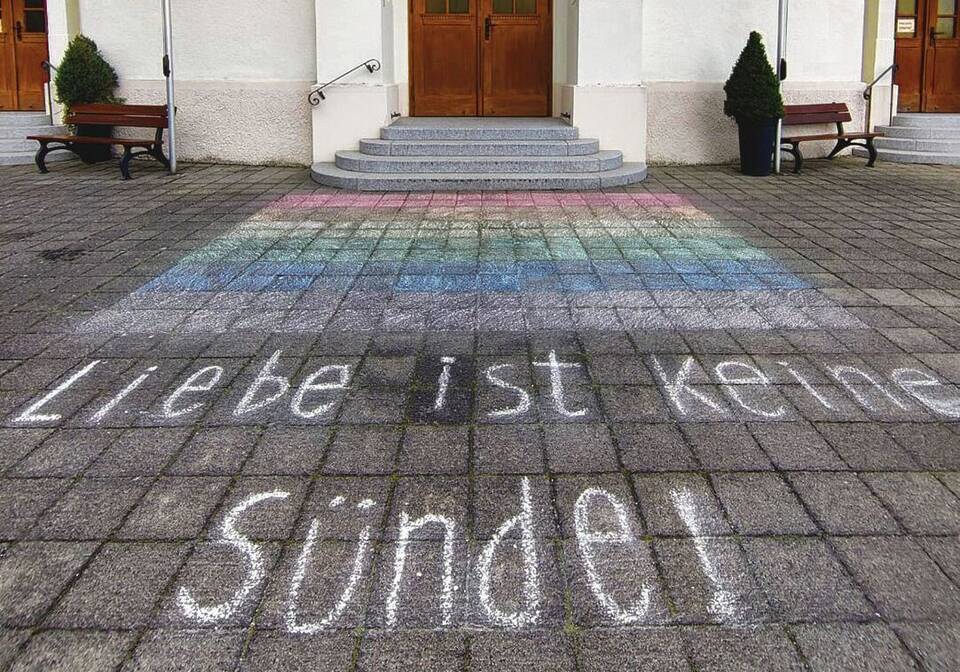 Liebe ist keine
Sünde!